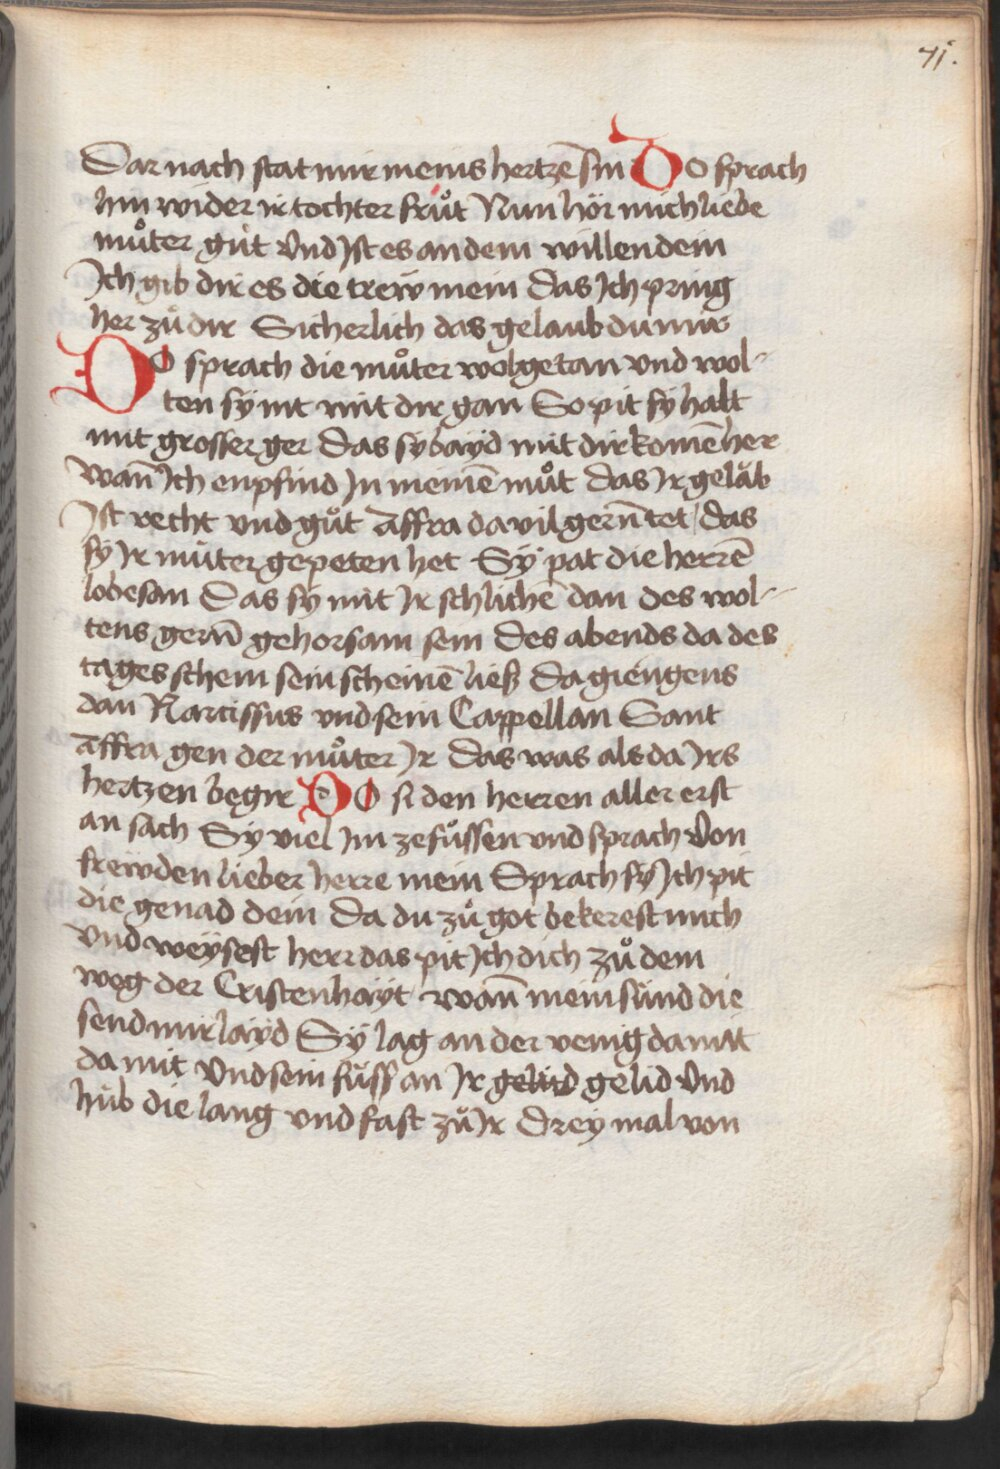 71.
Dar nach stat mir meins hertzē sin Do sprach
hin wider ir tochter frůt Nun hör mich liebe
můter gůt Vnd Ist es an dem willen dein
Ich gib dir es die trew mein Das Ich pring
her zů dir Sicherlich das gelaub du mir
Do sprach die můter wolgetan vnd wol-
ten sÿ nit mit dir gan So pit sÿ halt
mit grosser ger Das sÿ bayd mit dir komē her
wañ Ich enpfind In meinē můt Das Ir geläb
Ist recht vnd gůt Affra da vil gerñ tet / das
sÿ Ir můter gepeten het Sÿ pat die herrē
lobesan Das sÿ mit Ir schlichē dan des wol-
tens gerñ gehorsam sein Des abends da des
tages schein sein scheinē ließ Da giengens
dan Narcissus vnd sein Cappellan Sant
Affra gen der můter Ir Das was als da Irs
hertzen begir Do si den herren aller erst
an sach Sy viel Im ze fůssen vnd sprach Von
frewden lieber herre mein Sprach sÿ Ich pit
die genad dein Da du zů got bekerest mich
Vnd weÿsest herr das pit Ich dich zů dem
weg der Cristenhayt wañ mein sünd die
send mir layd Sÿ lag an der venig damit
da mit Vnd sein füss an Ir gelid gelid Vnd
hůb die lang vnd fast zů Ir Dreÿ mal von